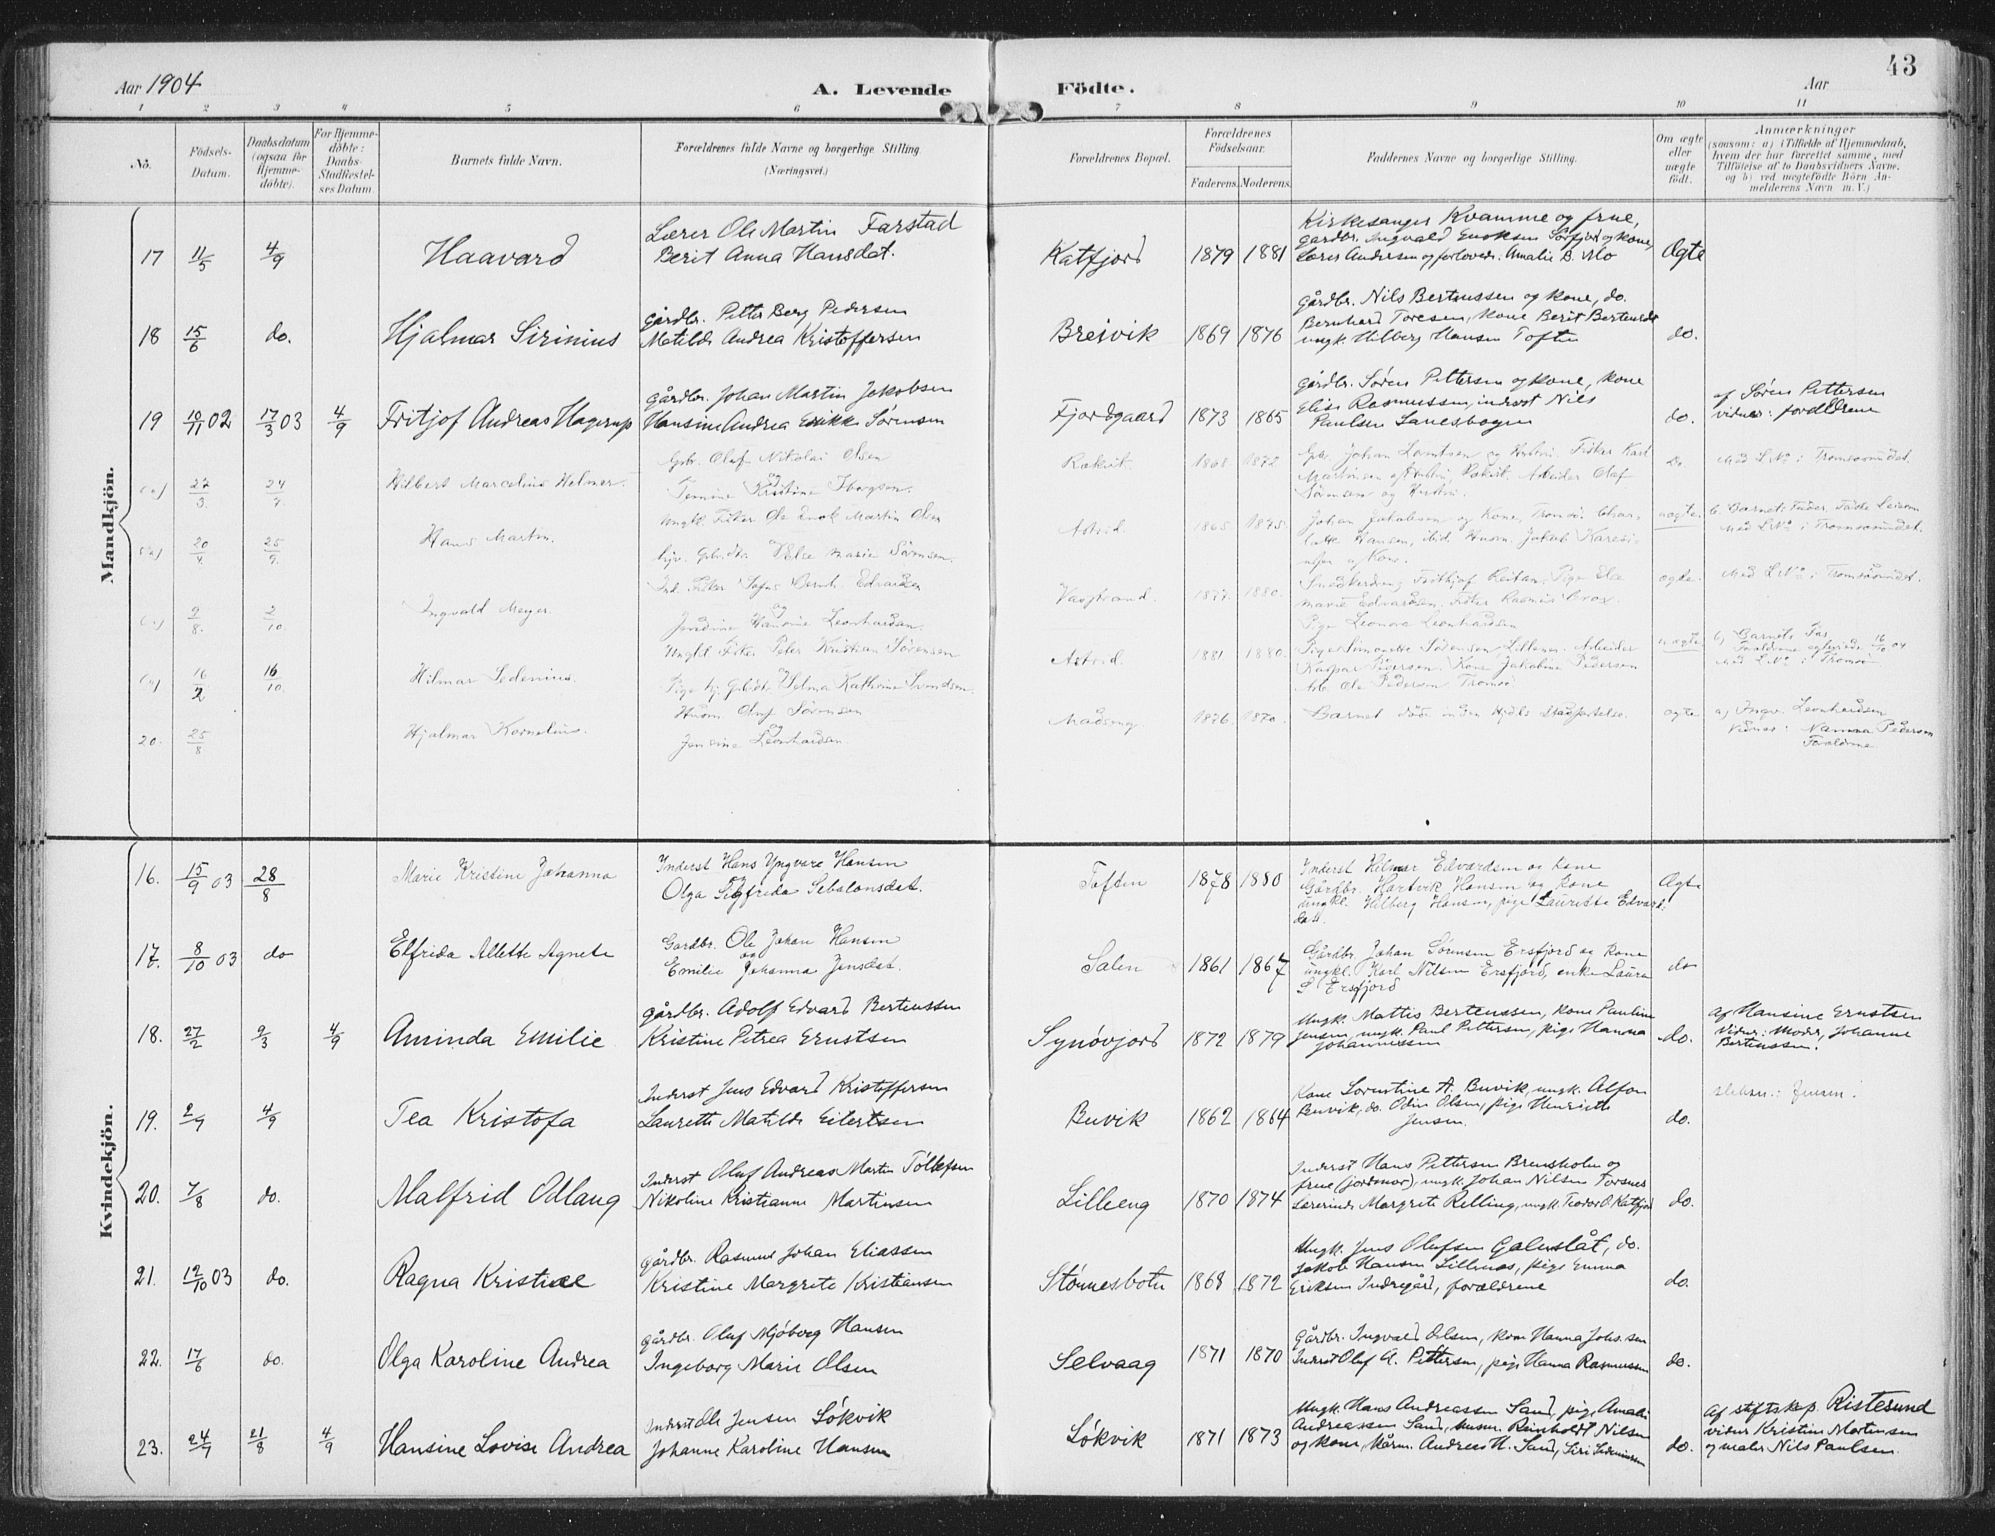 Aar 1904
A. Levende Födte.
Aar
43
1 2 3 4 5 6 7 8 9 10 11
No.
Födsels-
Datum.
Daabsdatum
(ogsaa for
Hjemme-
döbte).
For Hjemme-
döbte:
Daabs-
Stadfæstel-
ses Datum.
Barnets fulde Navn.
Forældrenes fulde Navne og borgerlige Stilling.
(Næringsvei.)
Forældrenes Bopæl.
Forældrenes
Födselsaar.
Faderens. Moderens.
Faddernes Navne og borgerlige Stilling.
Om ægte
eller
uægte
födt.
Anmærkninger
(saasom: a) i Tilfælde af Hjemmedaab,
hvem der har forrettet samme, med
Tilföielse af to Daabsvidners Navne.
og b) ved uegtefödte Börn An-
melderens Navn m. V.)
Mandkjön.
17 11/5 4/9 Haavard
Lærer Ole Martin Farstad
Berit Anna Hansdat.
Katfjord 1879 1881
Kirkesanger Kvamme og frue,
gårdbr. Ingvald Enoksen Sørfjord og kone,
Lærer Andersen og forlovede. Amalie B. Mo
Ægte
18 15/6 do. Hjalmar Sirinius
Gårdbr. Petter Berg Pedersen
Matilde Andrea Kristoffersen
Breivik 1869 1876
gårdbr. Nils Berteussen og kone, do.
Bernhard Toresen, kone Berit
ungk. Hilberg Hansen Toften
do.
19 10/11 02 17/3 03 4/9 Fritjof Andreas Hagerup
gårdbr. Johan Martin Jakobsen
Hansine Andrea Sørensen
Fjordgaard 1873 1865
gårdbr. Søren Pettersen og kone, kone
Elise Rasmussen, inderst Nils
Paulsen
do.
af Søren Pettersen
vidner: forældrene
22/3 24/7 Hilbert Marcelius Helmer.
Gbr. Olaf Nikolai Olsen
og
Kristine Thorgsen.
1868 1872
Gbr. Johan og Hustru. Fisker Karl
Arbeider Olaf
Sørensen og Hustru.
do
Med L.No i Tromsøsundet.
20/4 25/9 Hans Martin.
Ungkl. Fisker Ole Enok Martin Olsen
Else Marie Sørensen.
Astrid 1865 1875
Johan Jakobsen og Kone, Tromsø,
Hansen, ibid. Husm. Jakob
og Kone.
uægte.
b. Barnets Fader, Fisker
Med L.No i Tromsøsundet.
9/8. 2/10 Ingvald Meyer.
Ink. Fisker Bernh. Edvardsen
og
Leonhardsen.
1877 1880.
Fridthjof Reitan, Pige Else
Marie Edvardsen. Fisker Rasmus
Pige Leonora Leonhardsen
ægte.
Med L.No i Tromsøsundet.
16/2 16/10. Hilmar Sedenius.
Ungkl. Fisker Peter Kristian Sørensen
Pige Selma Kathrine Svendsen.
Astrid. 1881 1880.
Pige Simonette Sørensen Arbeider
Kaspar Pedersen Kone Jakobine Pedersen
Arb. Ole Pedersen Tromsø
uægte
b) Barnets Far,
Forældrene 16/10 04
Med L.No i Tromsø
20. 25/8 Hjalmar Kornelius.
Husm. Oluf Sørensen
Jensine Leonhardsen
1876 1870.
Barnet døde inden Hjdbs Stadfæstelse.
ægte
a) Ingv. Leonhardsen
Vidner: Nanna Pedersen
Forældrene
Kvindekjön.
16. 15/9 03 28/8 Marie Kristine Johanna
Inderst Hans Yngvare Hansen
og
Olga Sigfrida Sebulonsdat.
Toften 1878 1880
Inderst Helmer Edvardsen og Kone
Gårdbr. Hartvik Hansen og Kone
ungkl. Hilberg Hansen, pige Lauritse Edvard.
dat.
Ægte
17. 8/10 03 do Elfrida Allette Agnete
Gardbr. Ole Johan Hansen
og
Emilie Johanna Jensdat.
Salen 1861 1867
Gårdbr. Johan Sørensen Ersfjord og Kone
ungkl. Karl Nilsen Ersfjord, enke Laura
Ersfjord
do
18. 27/2 9/3 4/9 Aminda Emilie
gårdbr. Adolf Edvard Berteussen
Kristine Petrea Ernstsen
Synøvjord 1872 1879
Ungk. Mattis Berteussen, kone Pauline
Jensen, ungk. Paul Pettersen, pige Hanna
Johannessen
do.
af Hansine Ernstsen
Vidner: Moder, Johanne
Berteussen.
19. 4/9 Tea Kristofa
Inderst Jens Edvard Kristoffersen
Laurette Matilde Eilertsen
Buvik 1862 1864
Kone Lorentine A. Buvik, ungk. Alfon
Buvik, do. Odin Olsen, pige Henriette
Jensen.
do.
20. 7/8 do. Malfrid Odlaug
Inderst Oluf Andreas Martin Tollefsen
Nikoline Kristianne Martinsen
Lilleeng 1870 1874
Inderst Hans Pettersen Brensholm og
frue (jordmor), ungk. Johan Nilsen Torsnes
Lærerinde Margrete Relling, ungk. Teodor O. Katfjor
do.
21. 12/10 03 do. Ragna Kristine
gårdbr. Rasmus Johan Eliassen
Kristine Margrete Kristiansen
Stønnesbotn 1868 1872
Ungk. Jens Olufsen do.
Jakob Hansen Lillenes, pige Emma
Eriksen Indregård, forældrene
do.
22. 17/6 do. Olga Karoline Andrea
gårdbr. Oluf Mjöberg Hansen
Ingeborg Marie Olsen
Selvaag 1871 1870
Gårdbr. Ingvald Olsen, kone Hanna Johs.sen
Inderst Oluf A. Pettersen, pige Hanna Rasmussen
do.
23. 24/7 21/8 4/9 Hansine Lovise Andrea
Inderst Ole Jensen Løkvik
Johanne Karoline Hansen
Løkvik 1871 1873
Ungk. Hans Andreassen Sand, pige Amalie
Andreassen Sand, husm. Reinholdt Nilsen
og kone, Andreas H. Sand, Siri
do.
Af stiftskp. Ristesund
vidner Kristine Martinsen
og maler Nils Paulsen.